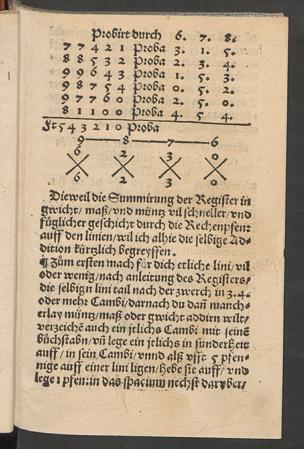 Probirt durch 6. 7. 8.
7 7 4 2 1 Proba 3. 1. 5.
8 8 5 3 2 Proba 2. 3. 4.
9 9 6 4 3 Proba 1. 5. 3.
9 8 7 5 4 Proba 0. 5. 2.
9 7 7 6 0 Proba 2. 5. 0.
8 1 1 0 0 Proba 4. 5. 4.
Ft 5 4 3 2 1 0 Proba
9 8 7 6
6 2 3 0
6 2 3 0
Dieweil die Summirung der Register in
gwicht/ maß/ vnd müntz vil schneller/ vnd
füglicher geschicht durch die Rechenpfen:
auff den linien/ wil ich alhie die selbige Ad=
dition kürtzlich begreyffen.
¶ Zům ersten mach für dich etliche lini/ vil
oder wenig/ nach anleitung des Registers/
die selbign lini tail nach der zwerch in 3. 4.
oder mehr Cambi/ darnach du dañ manch=
erlay müntz/ maß oder gwicht addirn wilt/
verzeichẽ auch ein jtlichs Cambi mit seinẽ
bůchstabn/ vñ lege ein jtlichs in sunderheit
auff/ in sein Cambi/ vnnd alß offt 5 pfen=
nige auff einer lini ligen/ hebe sie auff/ vnd
lege 1 pfen: in das spacium nechst daryber/